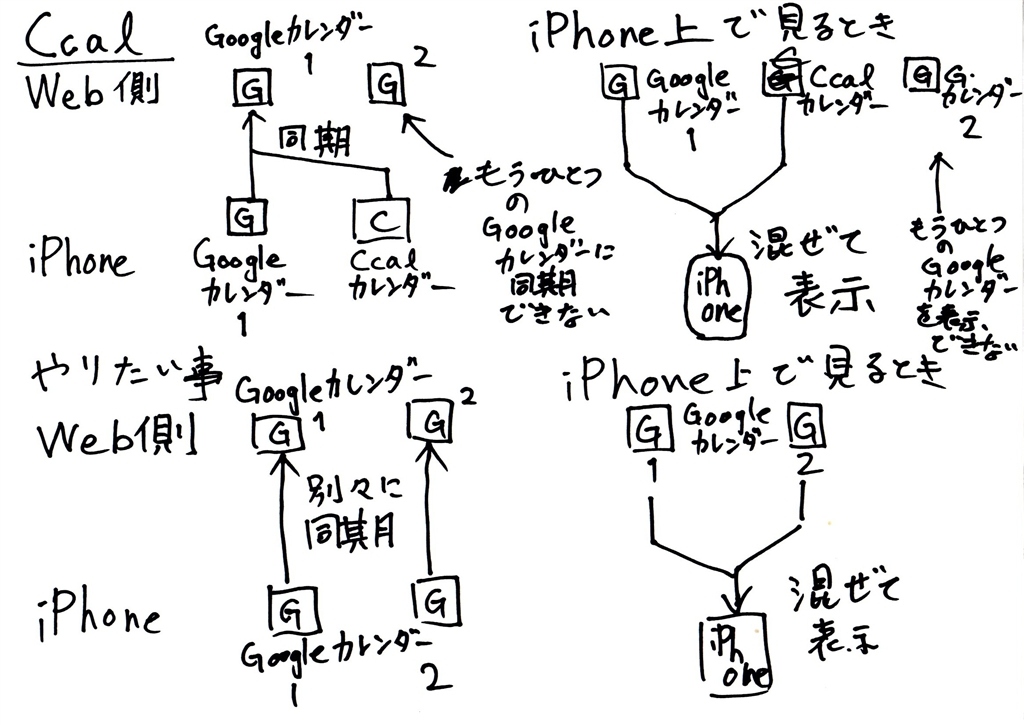 Ccal
Web側
Googleカレンダー
1
2
G
G
同期
もうひとつ
の
Google
カレンダーに
同期
できない
iPhone
G
Google
カレンダー
1
C
Ccal
カレンダー
iPhone上で見るとき
G
Google
カレンダー
1
Ccal
カレンダー
G
G.
カレンダー
2
混ぜて
表示
iPh
one
もうひとつ
の
Google
カレンダー
を表示
できない
やりたい事
Web側
Googleカレンダー
1
2
G
G
別々に
同期
iPhone
G
G
Googleカレンダー
1
2
iPhone上で見るとき
G
Google
カレンダー
G
1
2
混ぜて
表示
iPh
one